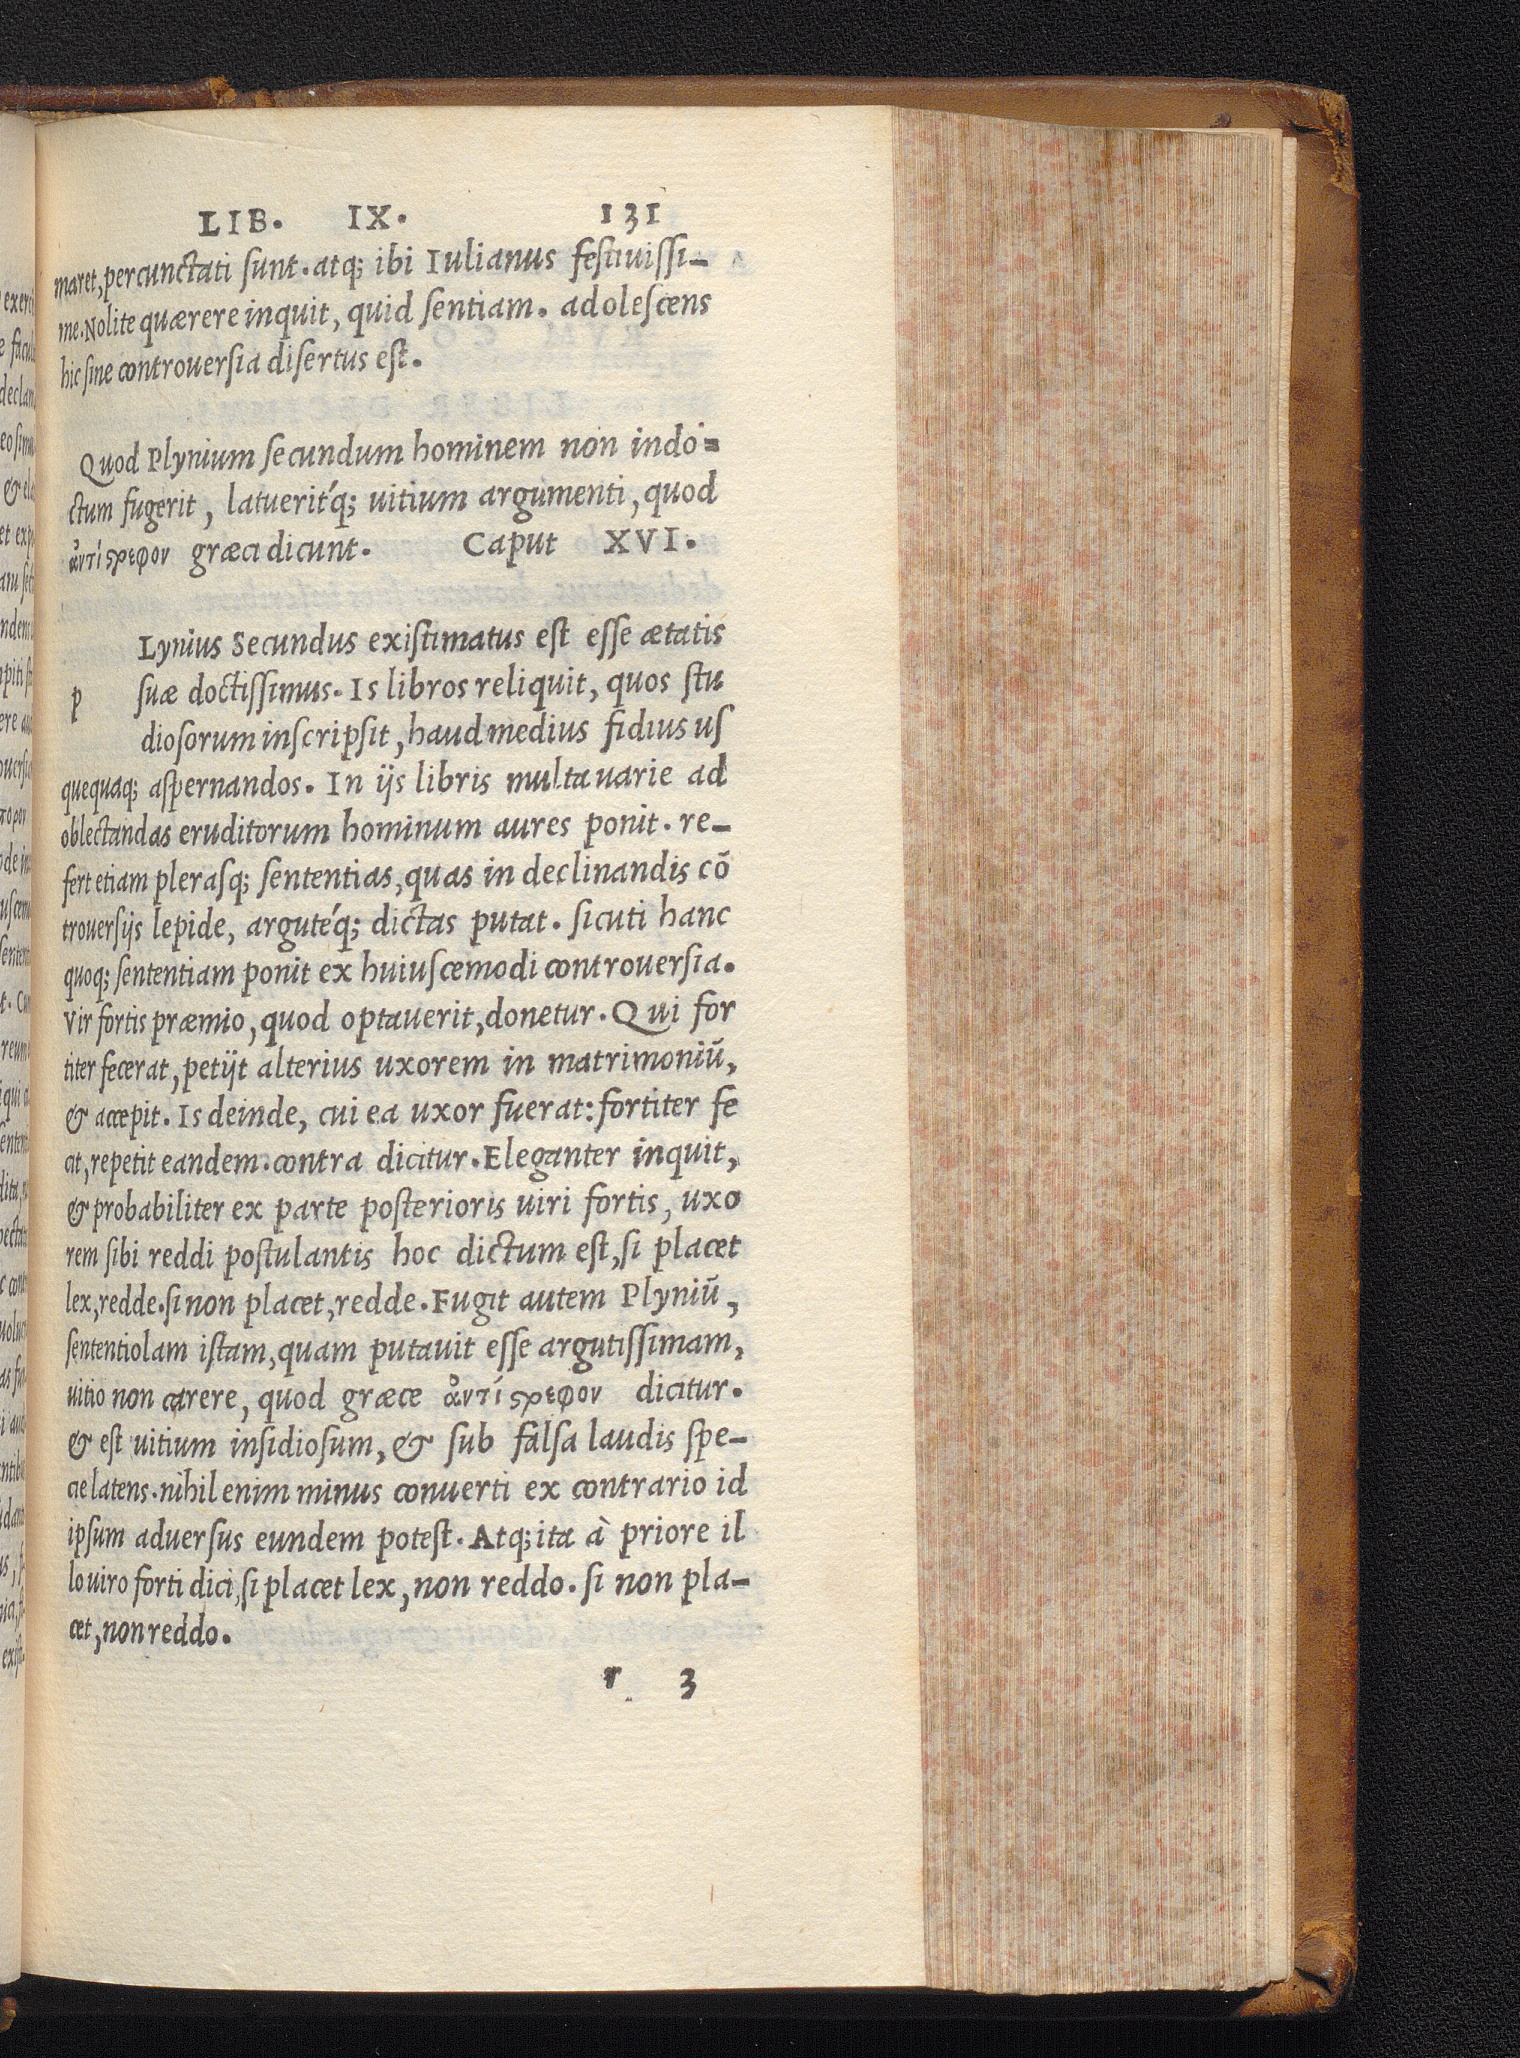 LIB. IX. 131
maret, percunctati sunt. atq; ibi Iulianus festiuissi-
me. Nolite quærere inquit, quid sentiam. adolescens
hic sine controuersia disertus est.
Quod Plynium secundum hominem non indo=
ctum fugerit, latuerit'q; uitium argumenti, quod
ἀντίστρεφον græci dicunt. Caput XVI.
Lynius Secundus existimatus est esse ætatis
p suæ doctissimus. Is libros reliquit, quos stu
diosorum inscripsit, haud medius fidius us
quequaq; aspernandos. In ijs libris multa uarie ad
oblectandas eruditorum hominum aures ponit. re-
fert etiam plerasq; sententias, quas in declinandis cō
trouersijs lepide, arguté'q; dictas putat. sicuti hanc
quoq; sententiam ponit ex huiuscemodi controuersia.
Vir fortis præmio, quod optauerit, donetur. Qui for
titer fecerat, petijt alterius uxorem in matrimoniū,
& accepit. Is deinde, cui ea uxor fuerat: fortiter fe
cit, repetit eandem. contra dicitur. Eleganter inquit,
& probabiliter ex parte posterioris uiri fortis, uxo
rem sibi reddi postulantis hoc dictum est, si placet
lex, redde. si non placet, redde. Fugit autem Plyniū,
sententiolam istam, quam putauit esse argutissimam,
uitio non carere, quod græce ἀντίστρεφον dicitur.
& est uitium insidiosum, & sub falsa laudis spe-
cie latens. nihil enim minus conuerti ex contrario id
ipsum aduersus eundem potest. Atq; ita à priore il
lo uiro forti dici, si placet lex, non reddo. si non pla-
cet, non reddo.
r 3